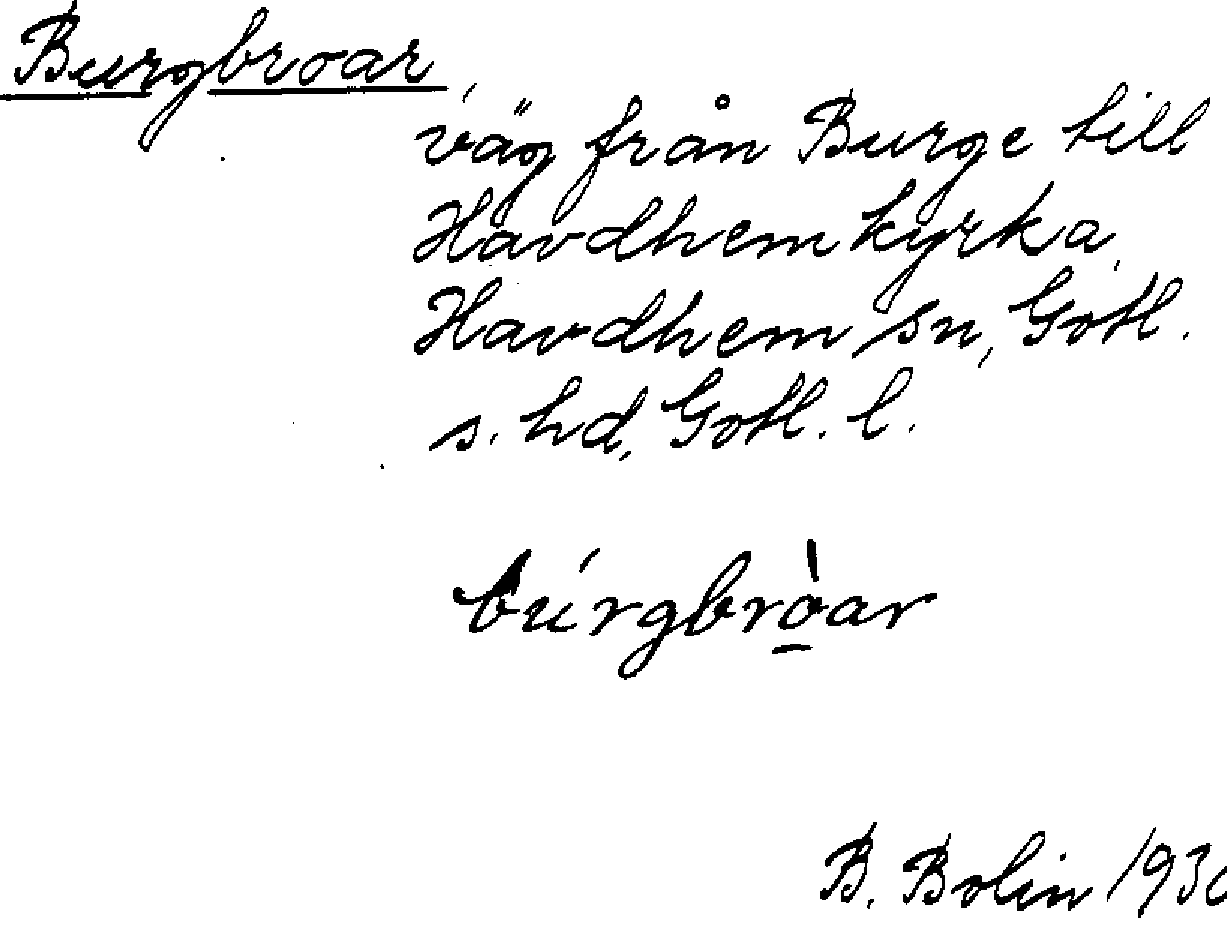 Burgbroar,
väg från Burge till
Havdhem kyrka,
Havdhem sn, Gotl.
s. hd, Gotl. l.
búrgbrò̱ar
B. Bolin